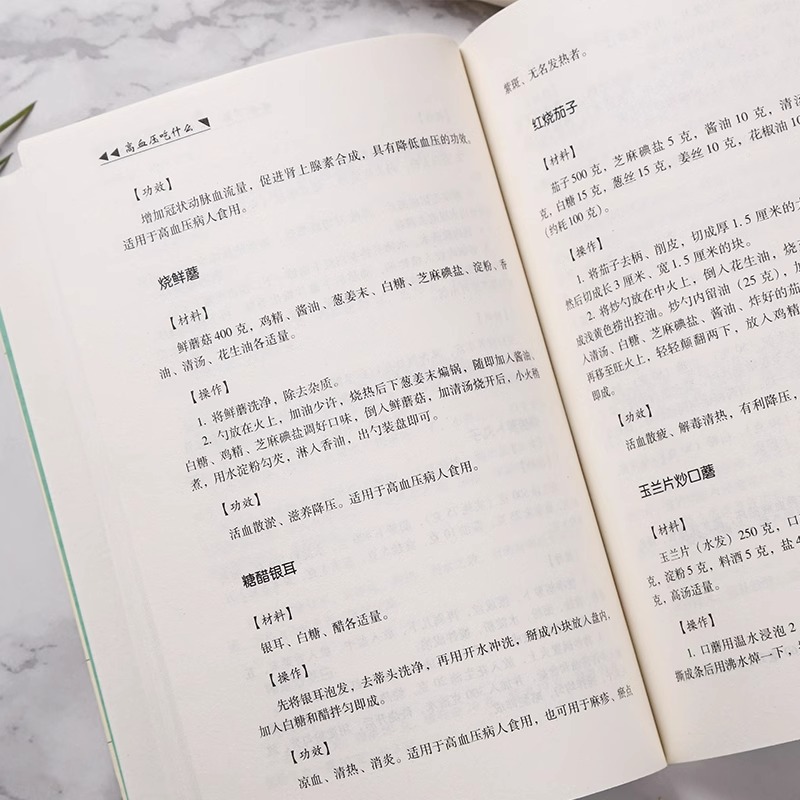 高血压吃什么
【功效】
增加冠状动脉血流量，促进肾上腺素合成，具有降低血压的功效。
适用于高血压病人食用。
烧鲜蘑
【材料】
鲜蘑菇400克，鸡精、酱油、葱姜末、白糖、芝麻碘盐、淀粉、香
油、清汤、花生油各适量。
【操作】
1. 将鲜蘑洗净，除去杂质。
2. 勺放在火上，加油少许，烧热后下葱姜末煸锅，随即加入酱油、
白糖、鸡精、芝麻碘盐调好口味，倒入鲜蘑菇，加清汤烧开后，小火稍
煮，用水淀粉勾芡，淋入香油，出勺装盘即可。
【功效】
活血散淤、滋养降压。适用于高血压病人食用。
糖醋银耳
【材料】
银耳、白糖、醋各适量。
【操作】
先将银耳泡发，去蒂头洗净，再用开水冲洗，掰成小块放入盘内，
加入白糖和醋拌匀即成。
【功效】
凉血、清热、消炎。适用于高血压病人食用，也可用于麻疹、瘀点
紫斑、无名发热者。
红烧茄子
【材料】
茄子500克，芝麻碘盐5克，酱油10克，清汤
克，白糖15克，葱丝15克，姜丝10克，花椒油10
（约耗100克）。
【操作】
1. 将茄子去柄、削皮，切成厚1.5厘米的
然后切成长3厘米、宽1.5厘米的块。
2. 将炒勺放在中火上，倒入花生油，烧
成浅黄色捞出控油。炒勺内留油（25克），加
入清汤、白糖、芝麻碘盐、酱油、炸好的茄
再移至旺火上，轻轻颠翻两下，放入鸡精
即成。
【功效】
活血散瘀、解毒清热，有利降压，
玉兰片炒口蘑
【材料】
玉兰片（水发）250克，口
克，淀粉5克，料酒5克，盐4
克，高汤适量。
【操作】
1. 口蘑用温水浸泡2
撕成条后用沸水焯一下，